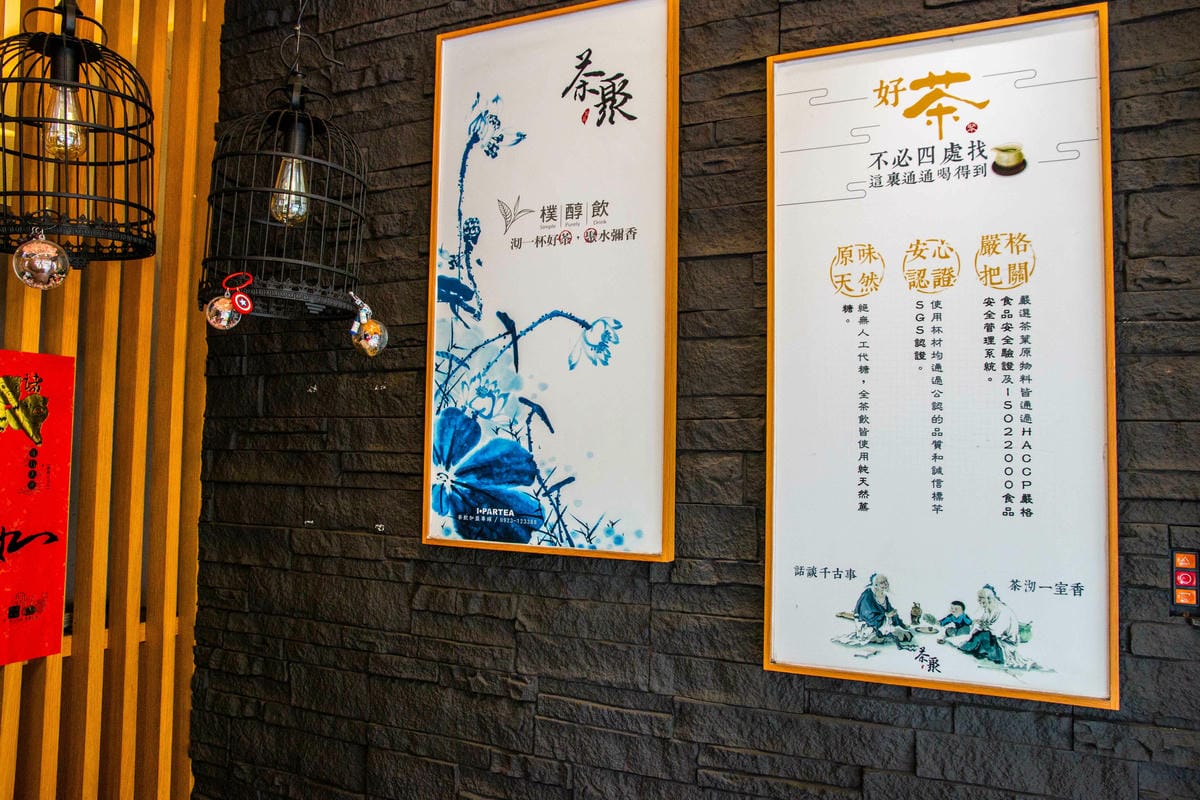 茶聚
樸 醇 飲
Simple Purely Drink
沏一杯好茶，聚水彌香
I•PARTEA
茶飲加盟專線 / 0923-123388
好茶
不必四處找
這裏通通喝得到
嚴格
把關
嚴選茶葉原物料皆通過HACCP嚴格
食品安全驗證及ISO22000食品
安全管理系統。
安心
認證
使用杯材均通過公認的品質和誠信標竿
SGS認證。
原味
天然
絕無人工代糖，全茶飲皆使用純天然蔗
糖。
話談千古事
茶沏一室香
茶聚